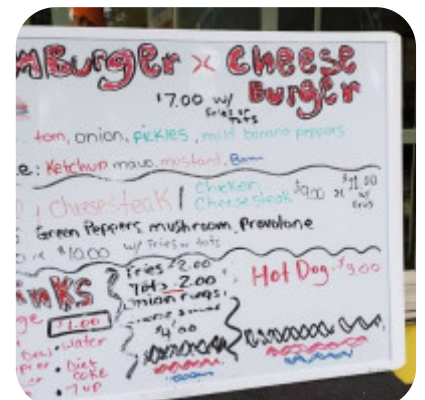 mBurger x Cheese
Burger
$7.00 w/
Fries or
Tots
tom, onion, pickles, mild banana peppers
e: Ketchup mayo, mustard,
Cheesesteak / Chicken
Cheesesteak $9.00 $11.00
w/
Green Peppers, mushroom, Provolone
$10.00 w/ Fries or tots
inks
$1.00
Water
Diet
Coke
7 up
Fries $2.00
Tots 2.00
Onion rings
$4.00
Hot Dog $3.00